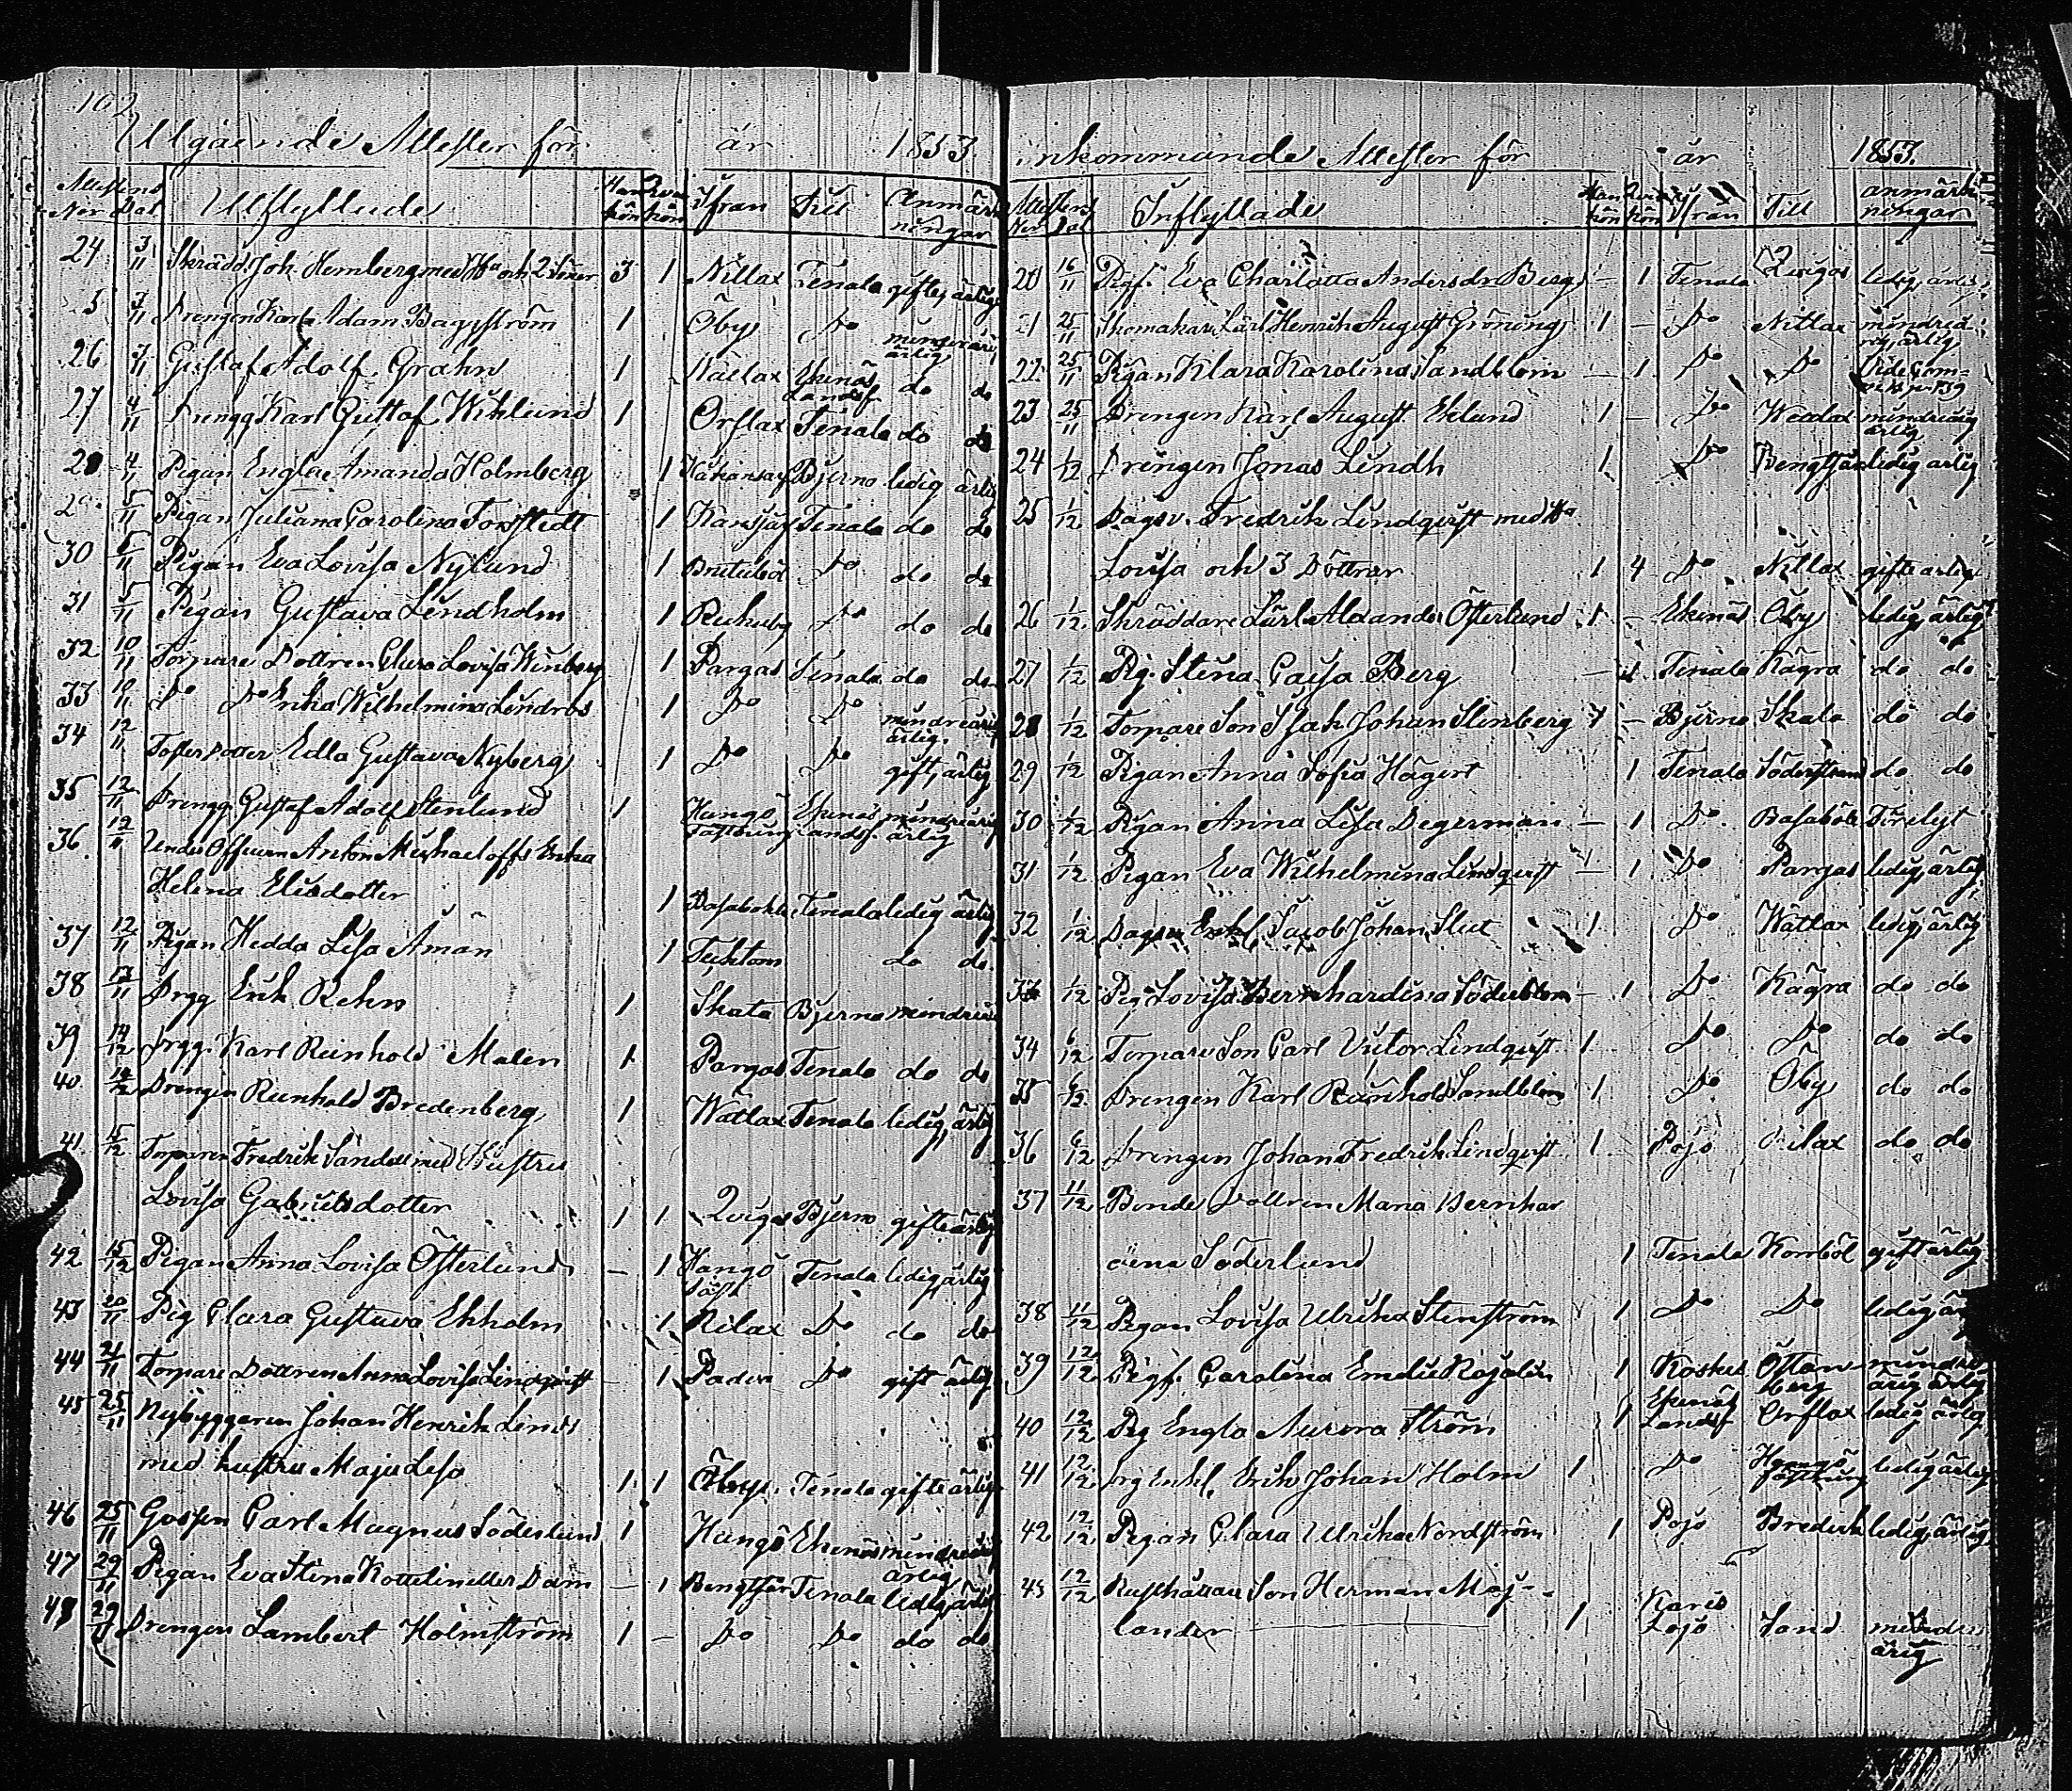 102
Utgående Attester för år 1853.
Attestens Utflyttade Mankön Qvinkön Ifrån Till Anmärk
Nor Dat ningar
24 3/11 Skrädd. Joh. Hemberg med Hu och 2 Söner 3 1 Nitlax Tenala gifte, ärlige
5 3/11 Drengen Karl Adam Baggström 1 Öby Do minderårig
ärlig
26 3/11 Gustaf Adolf Grahn 1 Ekenäs do do
Landsf.
27 4/11 Drengg Karl Gustaf Wiklund 1 Orslax Tenala do do
28 4/11 Pigan Engla Amanda Holmberg 1 Bjerno ledig ärlig
29 5/11 Pigan Juliana Carolina Forstedt 1 Kansjerf Tenala do do
30 5/11 Pigan Eva Lovisa Nylund 1 Do do do
31 5/11 Pigan Gustava Lindholm 1 Do do do
32 10/11 Torpare Dottren Clara Lovisa Winberg 1 Pargas Tenala do do
33 10/11 Do Do Erika Wilhelmina Lindros 1 Do Do mindreårig
ärlig.
34 12/11 Edla Gustava Nyberg 1 Do Do gift, ärlig
35 12/11 Drengg Gustaf Adolf Stenlund 1 Hangö Ekenäs mindreårig
Fästning Landsf. ärlig
36 12/11 Under Officeren Anton Michaeloffs Enka
Helena Elisdotter 1 Basaböle Tenala ledig ärlig
37 12/11 Pigan Hedda Lisa Åman 1 Tecktom do do
38 13/11 Drgg Erik Rehn 1 Skata Bjerno mindreårig
39 14/12 Drgg. Karl Reinhold Malen 1 Pargas Tenala do do
40 14/12 Drengen Reinhold Bredenberg 1 Wättlax Tenala ledig, ärlig
41 15/12 Torparen Fredrik Sandell med Hustru
Lovisa Gabrielsdotter 1 1 Bjerno gifte ärlig
42 15/12 Pigan Anna Lovisa Österlund – 1 Hangö Tenala ledig ärlig
Fäst
43 20/11 Pig Clara Gustava Ekholm 1 Rilax Do do do
44 21/11 Torpare Dottren Anna Lovisa Lindqvist – 1 Padva Do gift ärlig
45 25/11 Nybyggaren Johan Henrik Lind
med hustru Maja Lisa 1 1 Öby Tenala gifte ärlige
46 25/11 Gossen Carl Magnus Söderlund 1 Hangö Ekenäs mindreårig
ärlig
47 29/11 Pigan Eva Stina Kottelin eller Dam – 1 Bengtsår Tenala ledig, ärlig
48 29/11 Drengen Lambert Holmström 1 – Do Do do do
inkommande Attester för år 1853.
Attestens Inflyttade Mankön Qvinkön Ifrån Till anmärk
Nor Dat ningar
20 16/11 Pigf. Eva Charlotta Andersdr Berg – 1 Tenala ledig, ärlig
21 25/11 Skomakare Lärl Henrik August Gröning 1 – Do Nitlax mindreå
rig, ärlig
22 25/11 Pigan Klara Karolina Sandblom – 1 Do Do
23 25/11 Drengen Karl August Eklund 1 – Do mindreårig
ärlig
24 1/12 Drengen Jonas Lindh 1 Do Bengtsår ledig ärlig
25 1/12 Dagsv. Fredrik Lindqvist med Hu
Lovisa och 3 Döttrar 1 4 Do Nitlax gifte ärlige
26 1/12 Skräddare Lärl Alexander Österlund 1 – Ekenäs Öby ledig, ärlig
27 1/12 Pig. Stina Caisa Berg – 1 Tenala Kägra do do
28 1/12 Torpare Son Isak Johan Stenberg 1 – Bjerno Skata do do
29 1/12 Pigan Anna Sofia Hägert 1 Tenala Söderstrand do do
30 1/12 Pigan Anna Lisa Degerman – 1 Do Basaböle
31 1/12 Pigan Eva Wilhelmina Lindqvist – 1 Do Pargas ledig, ärlig
32 1/12 Dagsv Enkl Jacob Johan 1 Do Wättlax ledig, ärlig
33 1/12 Pig Lovisa Bernhardina Söderblom – 1 Do Kägra do do
34 6/12 Torpare Son Carl Victor Lindqvist 1 Do Do do do
35 6/12 Drengen Karl Reinhold Sandblom 1 Do Öby do do
36 6/12 Drengen Johan Fredrik Lindqvist 1 Pojo do do
37 11/12 Bonde Dottren Maria Bernhar
dina Söderlund 1 Tenala Komböl gift ärlig
38 11/12 Pigan Lovisa Ulrika Stenström 1 Do Do ledig är
39 12/12 Pigf. Carolina Emelie 1 Koskis Östan mindre
berg årig ärlig
40 12/12 Pig Engla Aurora Ström 1 Ekenäs Orslax ledig ärlig
Landsf
41 12/12 Drg Enkl. Erik Johan Holm 1 Do Hangö ledig ärlig
fästning
42 12/12 Pigan Clara Ulrika Nordström 1 Pojo Bredvik ledig, ärlig
43 12/12 Rusthållare Son Herman Maj-
lander 1 Karis Sand mindre
Lojo årig